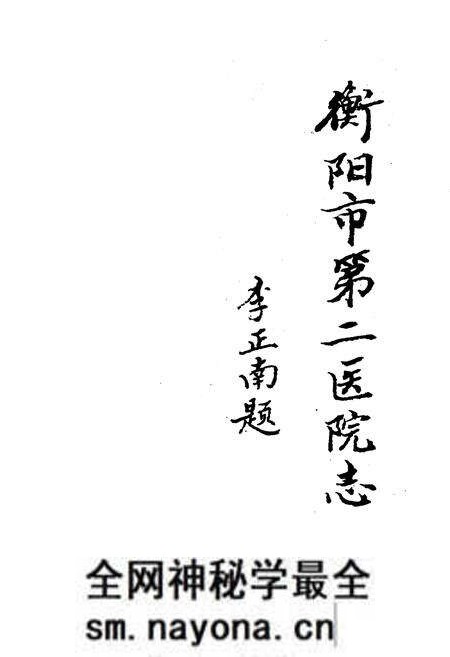 衡阳市第二医院志
李正南题
全网神秘学最全
sm.nayona.cn